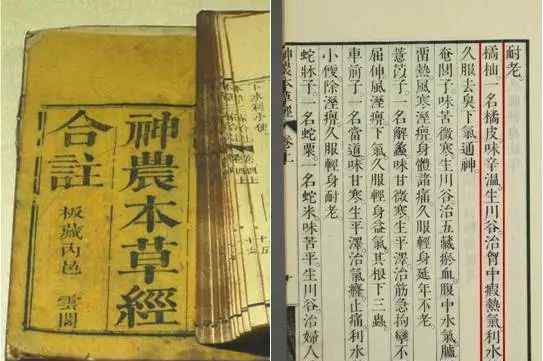 神農本草經
合註
板藏內邑 雲閣
耐老。
橘柚一名橘皮味辛溫生川谷治胷中瘕熱氣利水
久服去臭下氣通神。
奄閭子味苦微寒生川谷治五藏瘀血腹中水臚
畱熱風寒溼痹身體諸痛久服輕身延年不老。
薏苡子一名解蠡味甘微寒生平澤治筋急拘攣不
屈伸風溼痹下氣久服輕身益氣其根下三蟲。
車前子一名當道味甘寒生平澤治氣癃止痛利水
小便除溼痹久服輕身耐老
蛇牀子一名蛇粟一名蛇米味苦平生川谷治婦人
神農本草經 卷上 十